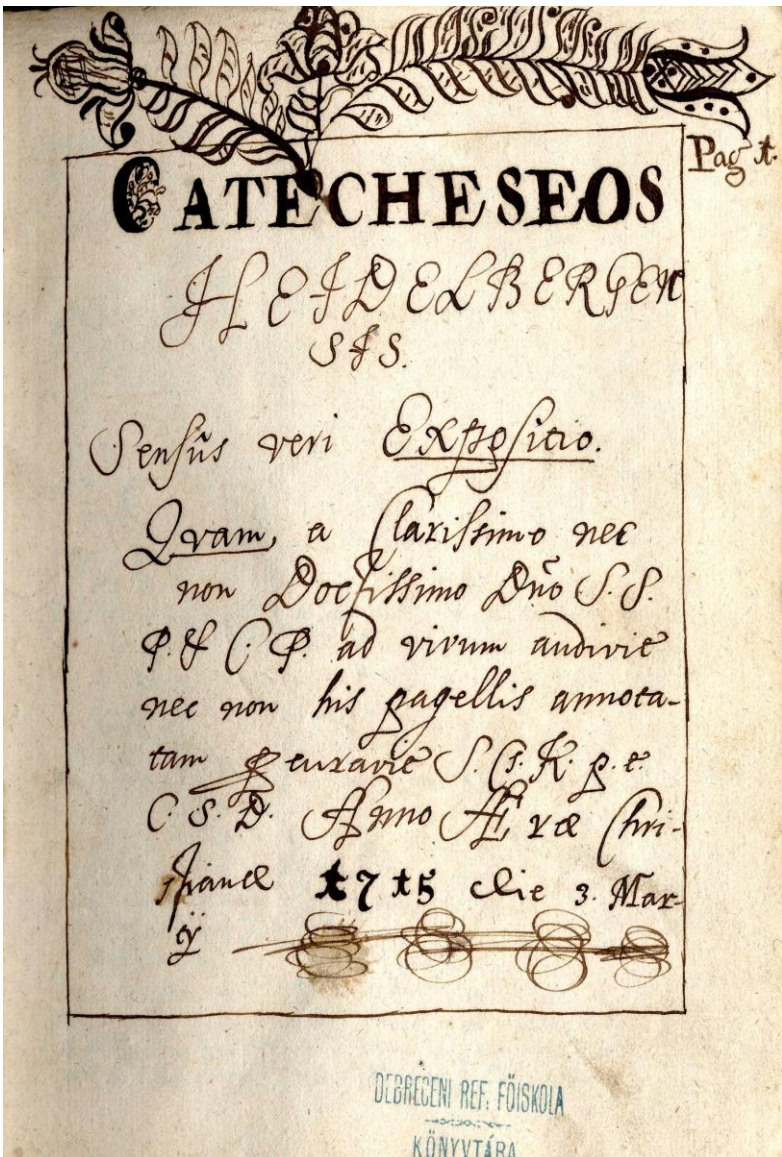 Pag 1.
CATECHESEOS
HEIDELBERGEN
SIS.
Sensûs veri Expositio.
Qvam, a Clarissimo nec
non Doctissimo Dño S. S.
P. & C. P. ad vivum audivit
nec non his pagellis annota-
tam curavit S. Cs. K. p. t.
C. S. D. Anno Æræ Chri-
stianæ 1715 die 3. Mar-
ÿ
DEBRECENI REF. FŐISKOLA
KÖNYVTÁRA